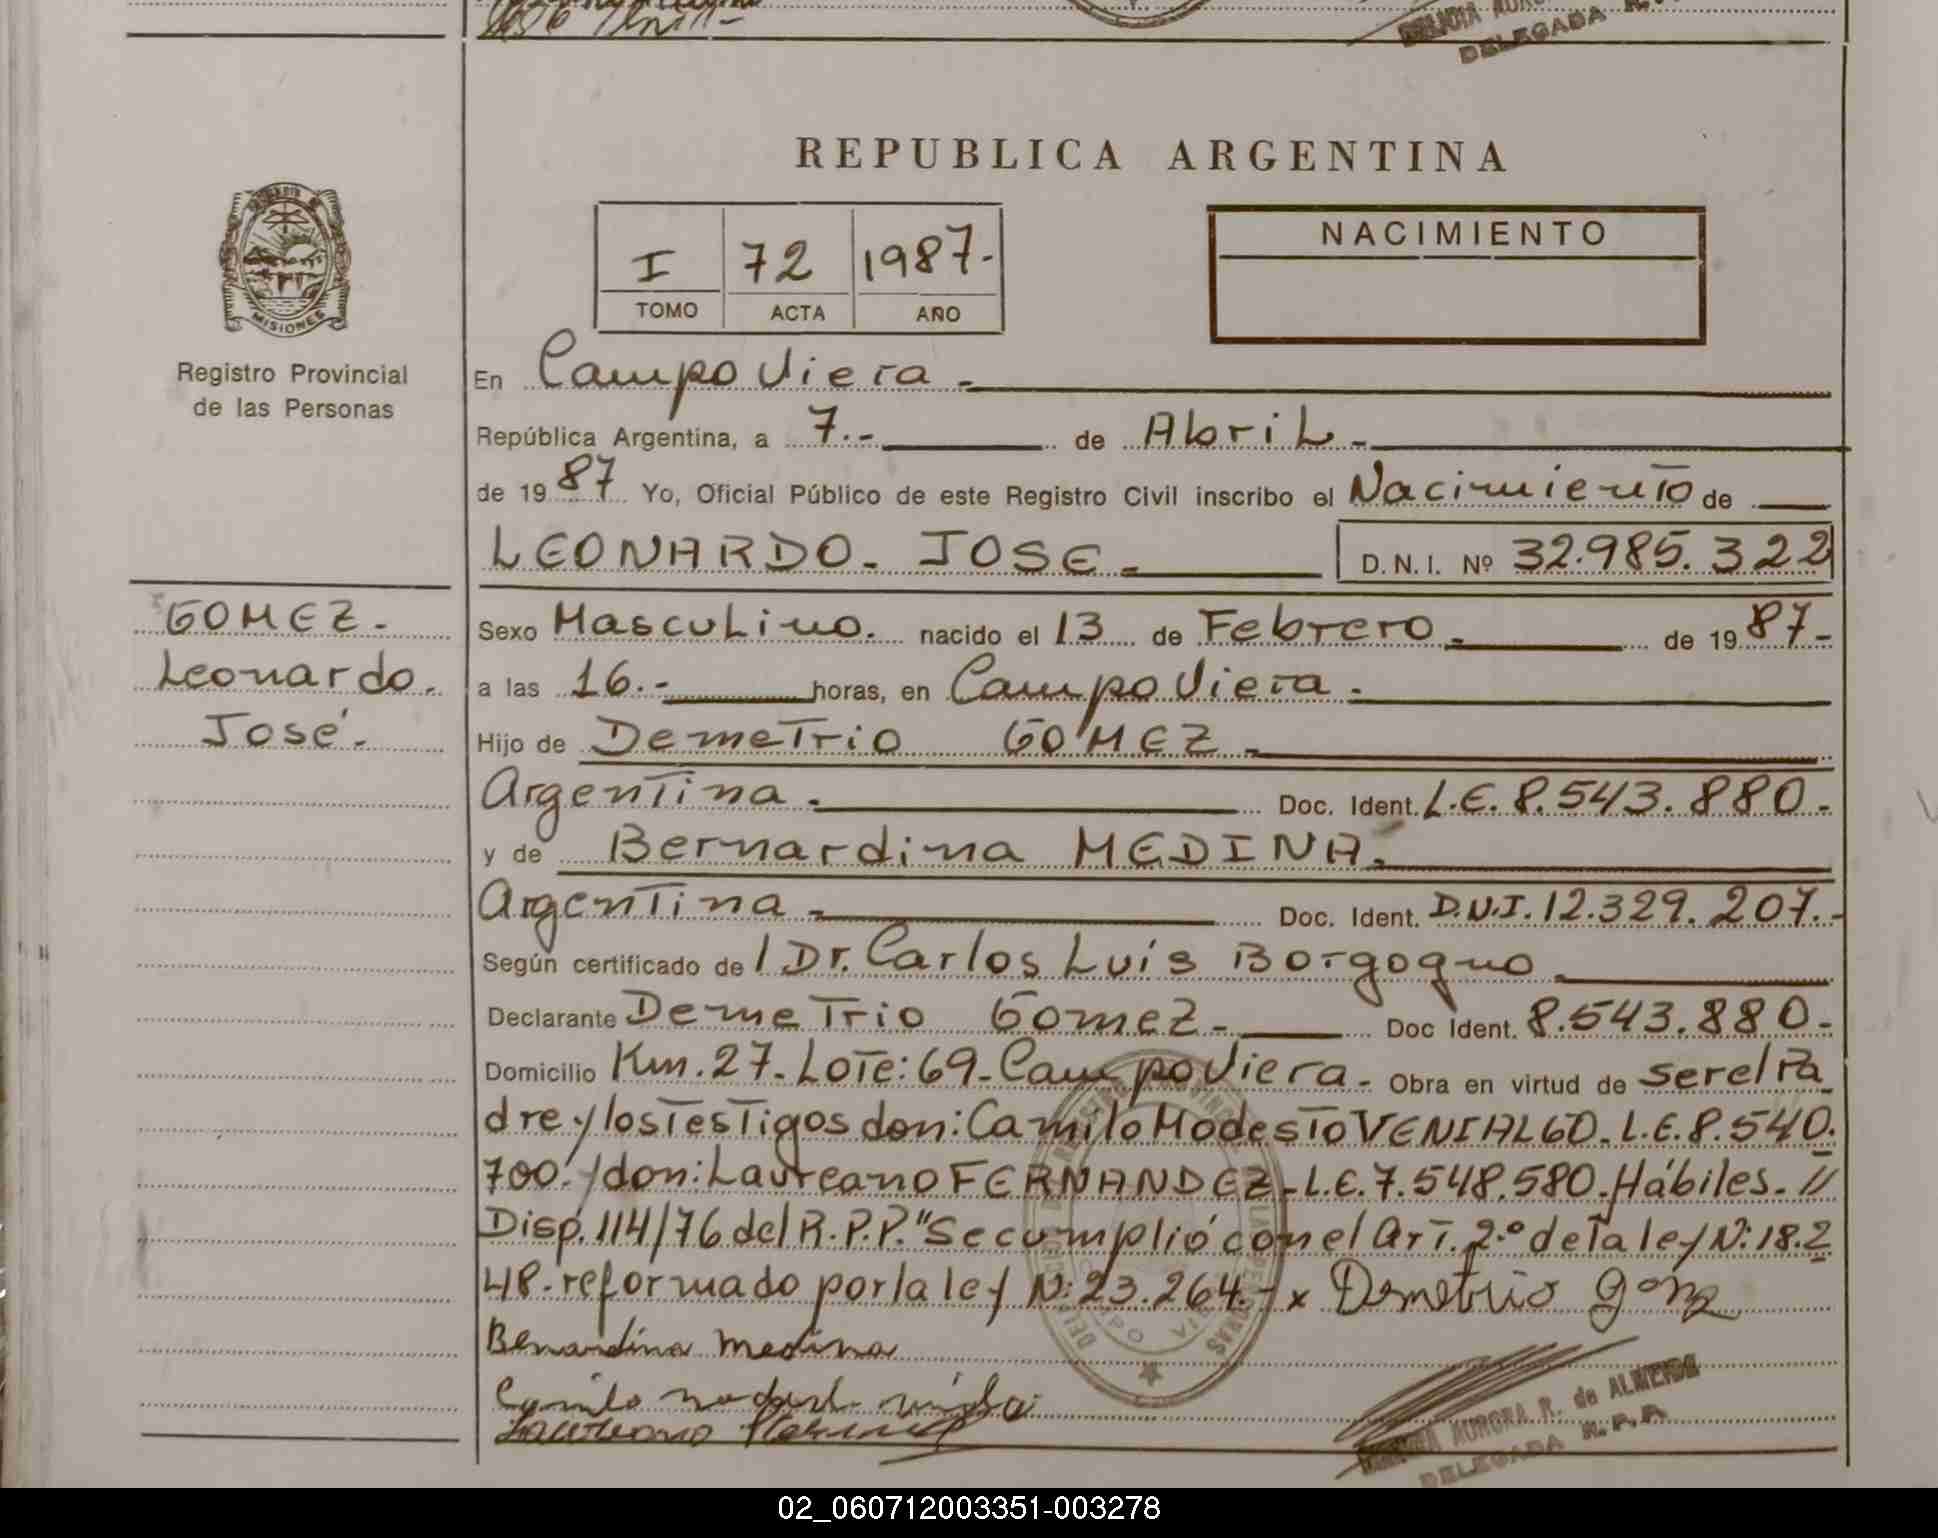 DELEGADA R.
REPUBLICA ARGENTINA
I 72 1987.-
TOMO ACTA AÑO
NACIMIENTO
MISIONES
Registro Provincial
de las Personas
En Campo Viera.-
República Argentina, a 7.- de Abril.-
de 1987 Yo, Oficial Público de este Registro Civil inscribo el Nacimiento de
LEONARDO. JOSE.- D.N.I. Nº 32.985.322
GOMEZ.-
Leonardo.
José.-
Sexo Masculino. nacido el 13 de Febrero.- de 1987.-
a las 16.- horas, en Campo Viera.-
Hijo de Demetrio GOMEZ.-
Argentina.- Doc. Ident. L.E. 8.543.880.-
y de Bernardina MEDINA.-
Argentina.- Doc. Ident. D.N.I. 12.329.207.-
Según certificado de / Dr. Carlos Luis Borgogno.-
Declarante Demetrio Gomez.- Doc Ident. 8.543.880.-
Domicilio Km. 27. Lote: 69. Campo Viera.- Obra en virtud de ser el Pa
dre y los testigos don: Camilo Modesto VENIALGO. L.E. 8.540.
700. y don: Laureano FERNANDEZ. L.E. 7.548.580. Hábiles. //
Disp. 114/76 del R.P.P. "Se cumplió con el Art. 2.º de la ley N: 18.2
48. reformado por la ley N: 23.264.- x Demetrio Gomz
Bernardina Medina
Camilo
AURORA R. de ALMEIDA
DELEGADA R.P.P.
02_060712003351-003278